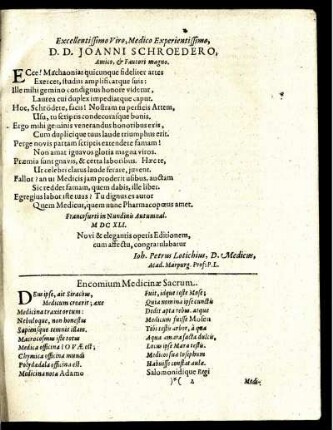 Excellentissimo Viro, Medico Experientissimo,
D. D. JOANNI SCHROEDERO,
Amico, & Fautori magno.
ECce! Machaonias quicunque fideliter artes
Exercet, studiis amplificatque suis:
Ille mihi gemino condignus honore videtur,
Laurea cui duplex impediatque caput.
Hoc, Schrödere, facis! Nostram tu perficis Artem,
Usu, tu scriptis condecorasque bonis,
Ergo mihi geminis venerandus honoribus exis,
Cum duplicique tuus laude triumphus erit.
Perge novis patriam scriptis extendere famam!
Non amat ignavos gloria magna viros.
Præmia sunt gnavis, & certa laboribus. Hæc te,
Ut celebrer clarus laude ferare, juvent.
Fallor? an ut Medicis jam proderit usibus, auctam
Sic reddet famam, quem dabis, ille liber.
Egregius labor iste tuus? Tu dignus es autor
Quem Medicus, quem nunc Pharmacopœus amet.
Francofurti in Nundinis Autumnal.
M DC XLI.
Novi & elegantis operis Editionem,
cum affectu, congratulabatur
Joh. Petrus Lotichius, D. Medicus,
Acad. Marpurg. Prof. P. L.
Encomium Medicinæ Sacrum.
DEus ipse, ait Sirachus,
Medicum creavit; ante
Medicina traxit ortum:
Nebulaque, non honestus
Sapiensque temnit illam.
Macrocosmus iste totus
Medica officina IOVÆ est;
Chymica officina mundi
Polydædala officina est.
Medicina nota Adamo
Fuit, idque teste Mose;
Quia nomina ipse cunctis
Dedit apta rebus. atque
Medicum fuisse Mosen
Tibi testis arbor, à qua
Aqua amara facta dulcis,
Locus ipse Mara testis.
Medicos sua sosiphram
Habuisse constat aula.
Salomonidique Regi
)*( 2
Medi-